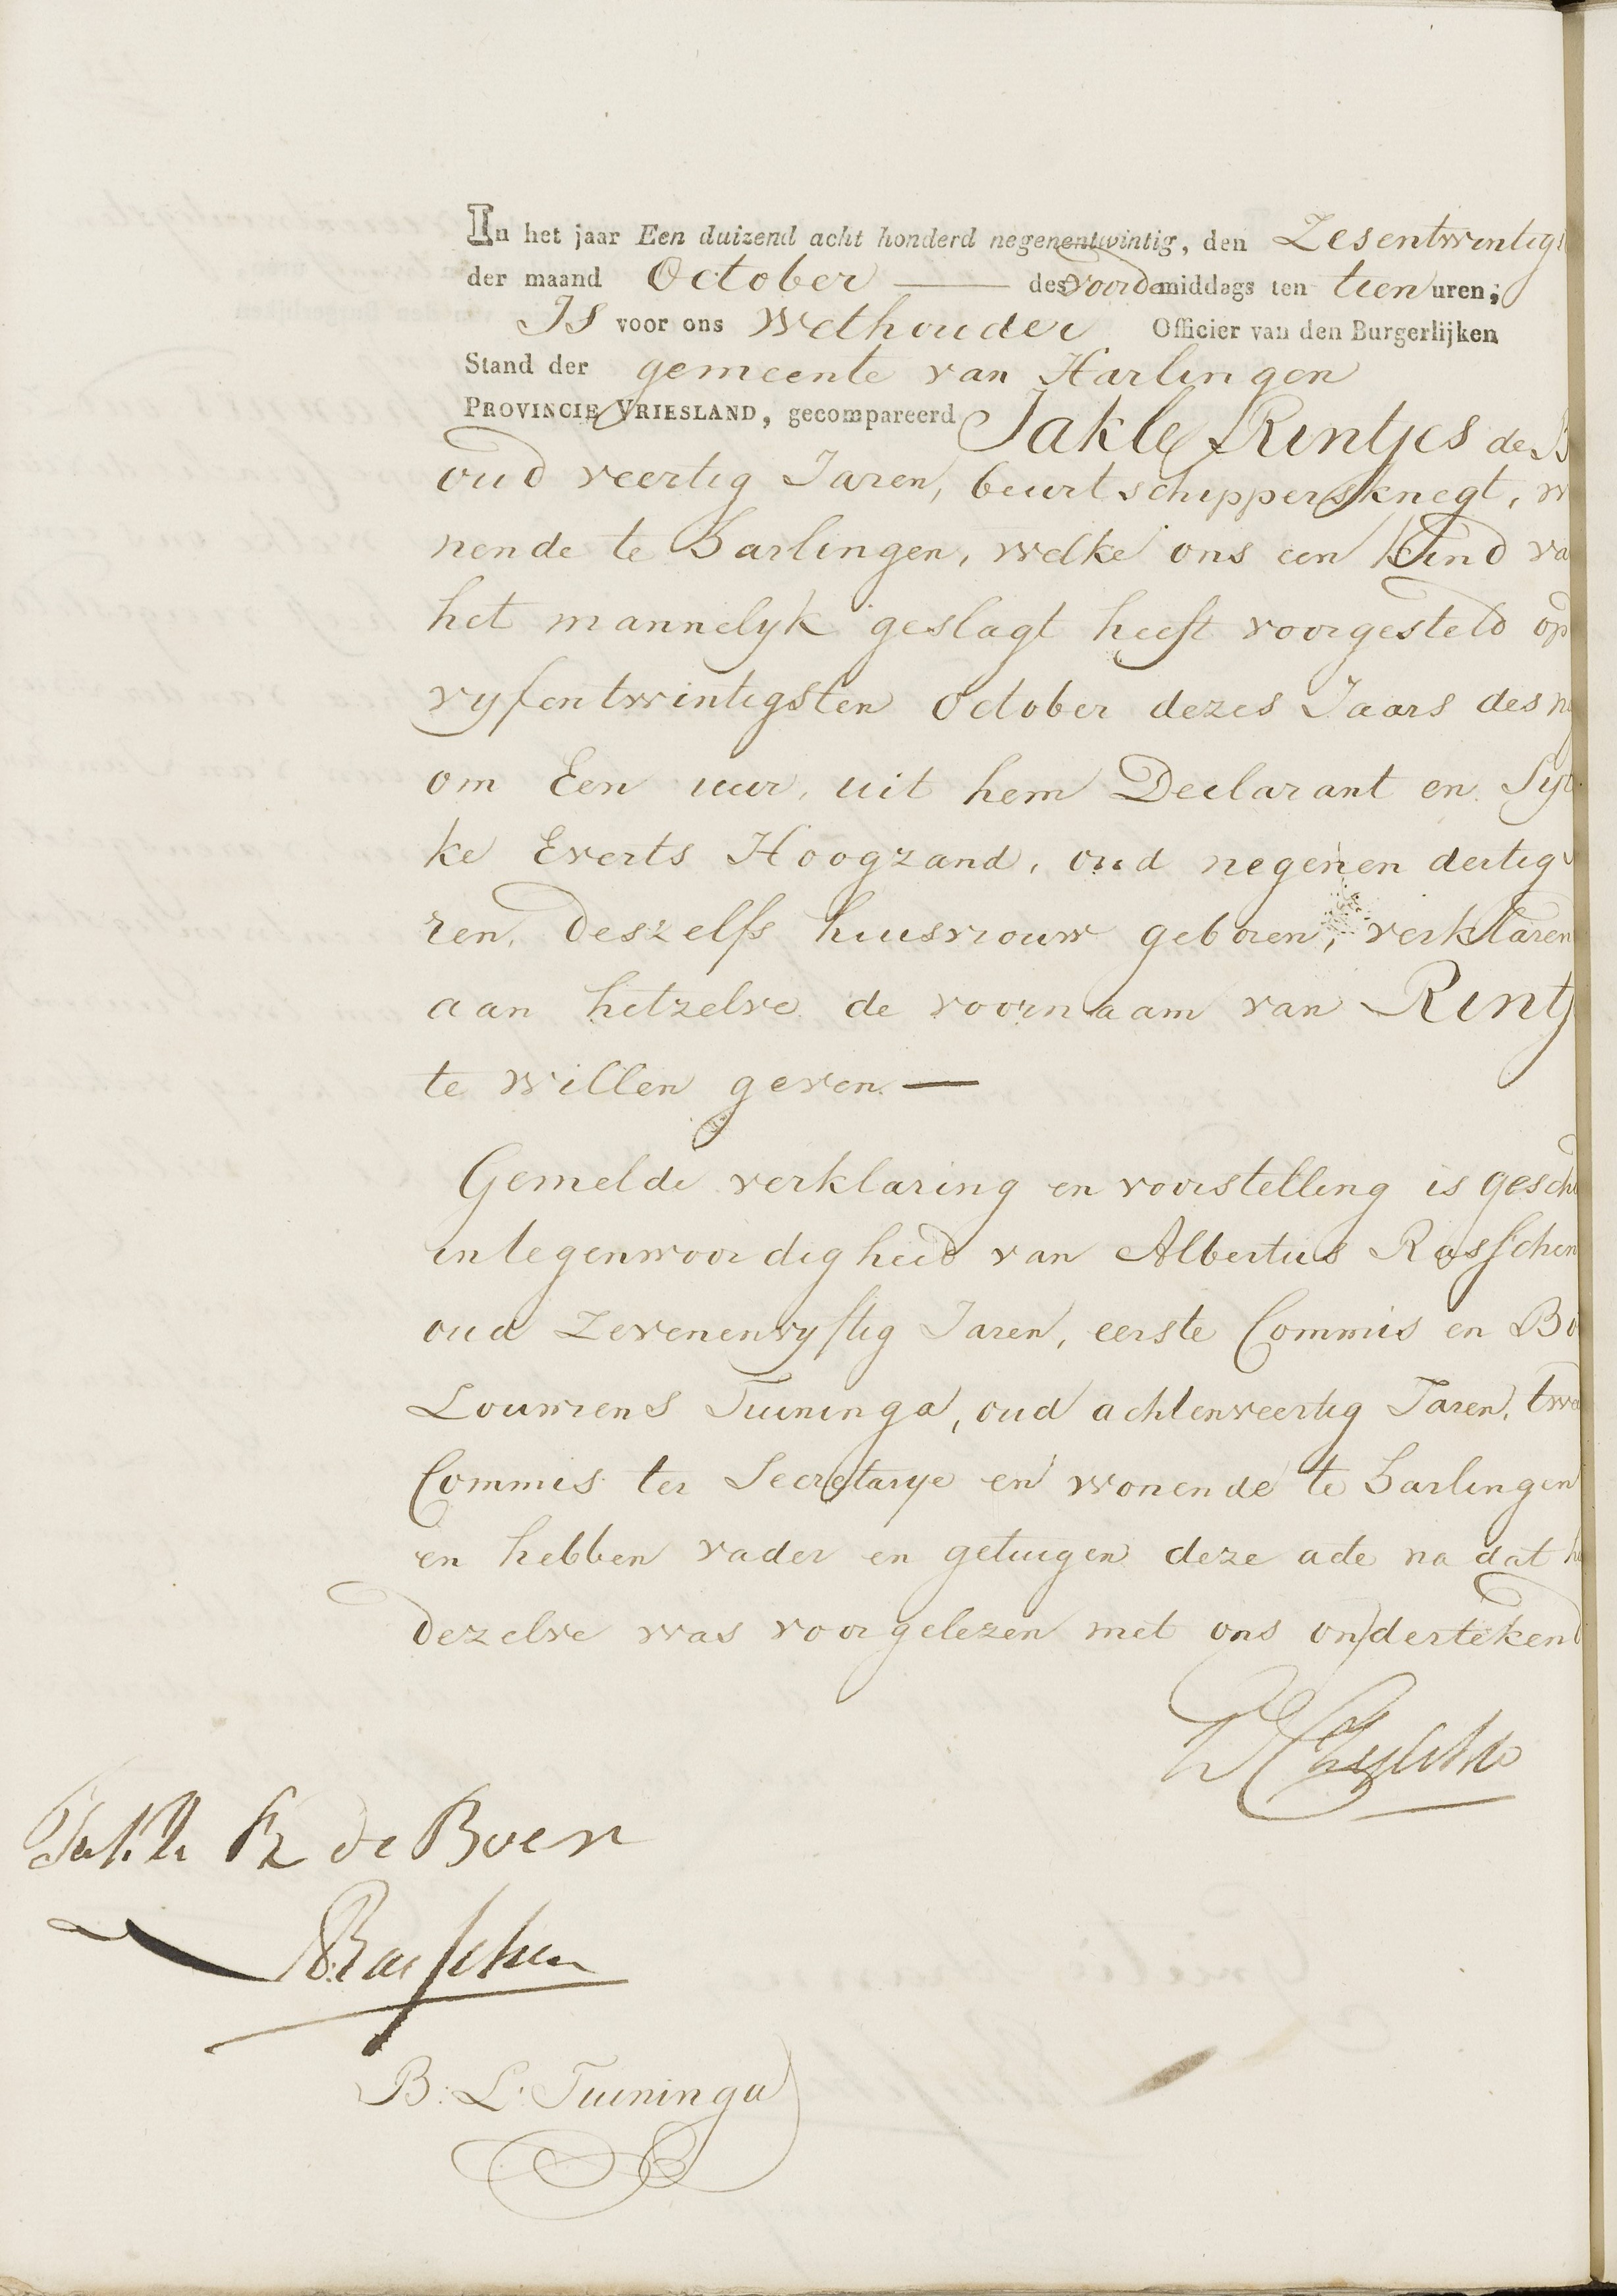 In het jaar Een duizend acht honderd negenentwintig, den Zesentwintigs
der maand October — des voordemiddags ten tien uren;
Is voor ons Wethouder Officier van den Burgerlijken
Stand der gemeente van Harlingen
PROVINCIE VRIESLAND, gecompareerd Jakle Rintjes de B
oud veertig Jaren, beurtschippersknegt, w
nende te Harlingen, welke ons een kind va
het mannelyk geslagt heeft voorgesteld op
vyfentwintigsten October dezes Jaars des n
om Een uur, uit hem Declarant en Syt
ke Everts Hoogzand, oud negenen dertig
ren, deszelfs huisvrouw geboren, verklaren
aan hetzelve de voornaam van Rintj
te willen geven. —
Gemelde verklaring en voorstelling is gesch
in tegenwoordigheid van Albertus Rasschen
oud Zevenenvyftig Jaren, eerste Commis en Bo
Louwrens Tuininga, oud achtenveertig Jaren, twe
Commis ter Secretarye en wonende te Harlingen
en hebben vader en getuigen deze acte na dat h
dezelve was voorgelezen met ons onderteken
Jakle Rz de Boer
ARasschen
B: L: Tuininga